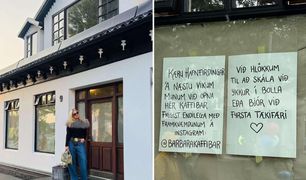 KÆRU HAFNFIRÐINGAR
Á NÆSTU VIKUM
MUNUM VIÐ OPNA
HÉR KAFFIBAR.
FYLGIST ENDILEGA MEÐ
FRAMKVÆMDUNUM Á
INSTAGRAM
@BARBARAKAFFIBAR
VIÐ HLÖKKUM
TIL AÐ SKÁLA VIÐ
YKKUR Í BOLLA
EÐA BJÓR VIÐ
FYRSTA TÆKIFÆRI